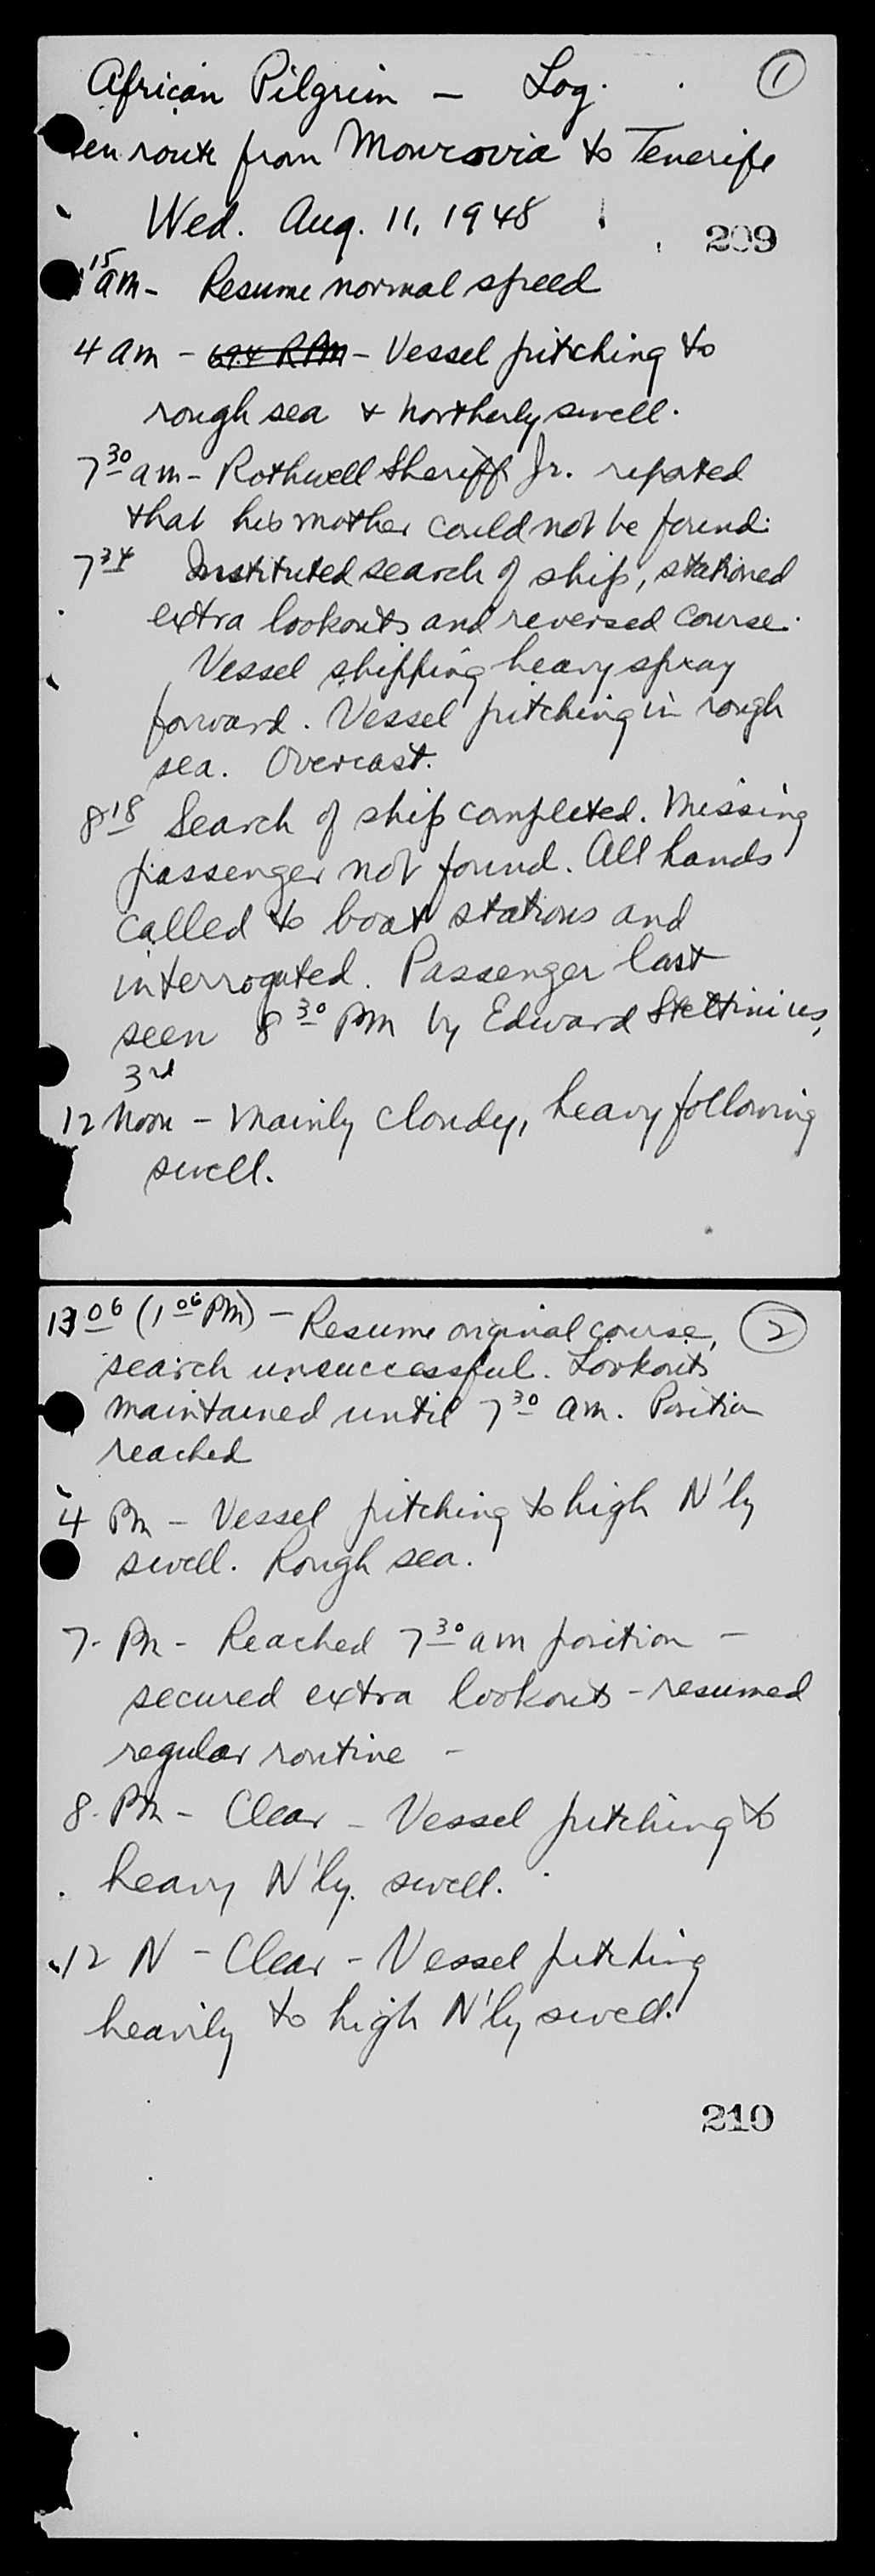 African Pilgrim – Log. ①
en route from Monrovia to Tenerife
Wed. Aug. 11, 1948
209
15 am – Resume normal speed
4 am – 69.4 RPM – Vessel pitching to
rough sea & northerly swell.
7 30 am – Rothwell Sheriff Jr. reported
that his mother could not be found.
7 34 Instituted search of ship, stationed
extra lookouts and reversed course.
Vessel shipping heavy spray
forward. Vessel pitching in rough
sea. Overcast.
8 18 Search of ship completed. Missing
passenger not found. All hands
called to boat stations and
interrogated. Passenger last
seen 8 30 PM by Edward Stettinius,
3rd
12 Noon – Mainly cloudy, heavy following
swell.
13 06 (1 06 PM) – Resume original course, ②
search unsuccessful. Lookouts
maintained until 7 30 am. Position
reached
4 PM – Vessel pitching to high N'ly
swell. Rough sea.
7. PM – Reached 7 30 am position –
secured extra lookouts – resumed
regular routine –
8. PM – Clear – Vessel pitching to
heavy N'ly. swell.
12 N – Clear – Vessel pitching
heavily to high N'ly swell.
210